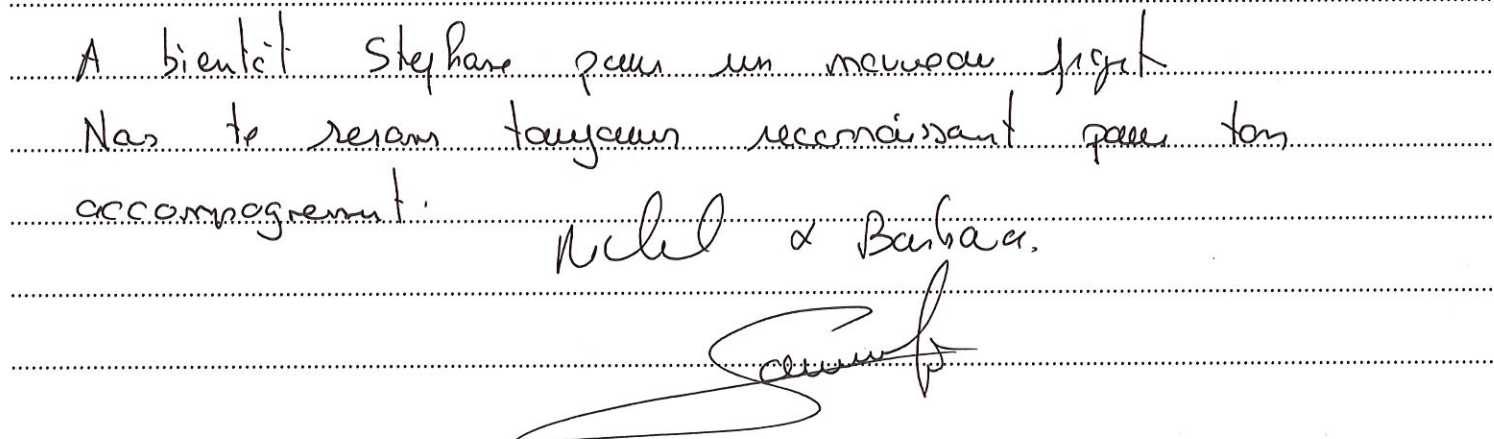 A bientôt Stephane pour un nouveau projet
Nous te serons toujours reconnaissant pour ton
accompagnement.
& Barbara.